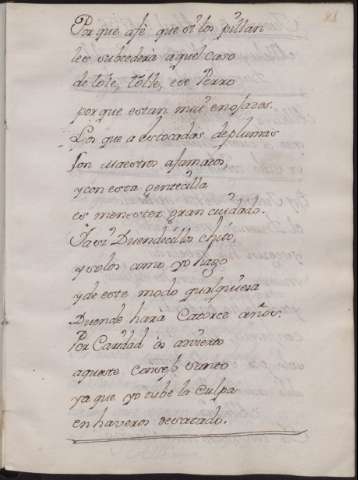 Porque afè que si los pillan
les subcederà aquel caso
de tole, tolle, ese Perro
porque estan mui enojados.
Los que a estocadas de plumas
son Maestros afamados,
y con esta gentecilla
es menester gran cuidado.
Duendecillo chito,
y solos como yo hago
y de este modo qualquiera
Duende harà Catorce años.
Por Caridad os advierto
aqueste Consejo
ya que yo tube la Culpa
en haveros desatado.